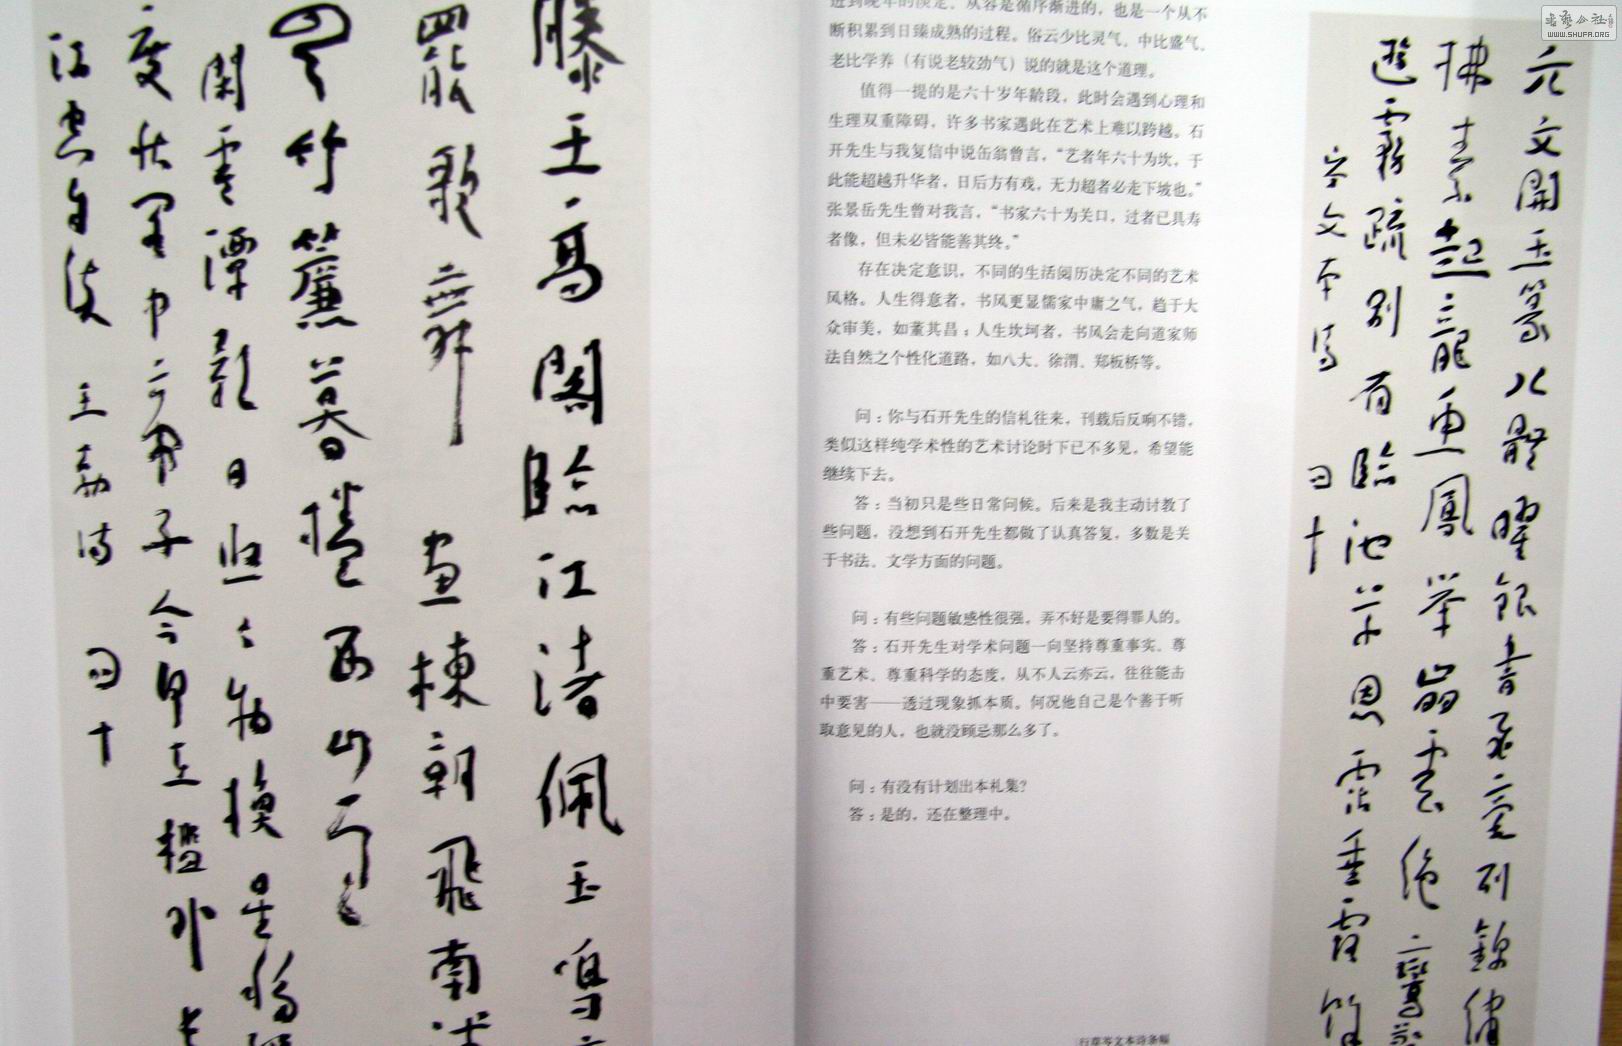 滕王高閣臨江渚佩玉鳴
罷歌舞畫棟朝飛南浦
簾暮捲西山雨
閑雲潭影日悠悠物換星移
度秋閣中帝子今何在檻外長
江空自流 王勃詩
进到晚年的淡定、从容是循序渐进的，也是一个从不
断积累到日臻成熟的过程。俗云少比灵气，中比盛气，
老比学养（有说老较劲气）说的就是这个道理。
值得一提的是六十岁年龄段，此时会遇到心理和
生理双重障碍，许多书家遇此在艺术上难以跨越。石
开先生与我复信中说缶翁曾言，“艺者年六十为坎，于
此能超越升华者，日后方有戏，无力超者必走下坡也。”
张景岳先生曾对我言，“书家六十为关口，过者已具寿
者像，但未必皆能善其终。”
存在决定意识，不同的生活阅历决定不同的艺术
风格。人生得意者，书风更显儒家中庸之气，趋于大
众审美，如董其昌；人生坎坷者，书风会走向道家师
法自然之个性化道路，如八大、徐渭、郑板桥等。
问：你与石开先生的信札往来，刊载后反响不错，
类似这样纯学术性的艺术讨论时下已不多见，希望能
继续下去。
答：当初只是些日常问候。后来是我主动讨教了
些问题，没想到石开先生都做了认真答复，多数是关
于书法、文学方面的问题。
问：有些问题敏感性很强，弄不好是要得罪人的。
答：石开先生对学术问题一向坚持尊重事实、尊
重艺术、尊重科学的态度，从不人云亦云，往往能击
中要害——透过现象抓本质。何况他自己是个善于听
取意见的人，也就没顾忌那么多了。
问：有没有计划出本札集？
答：是的，还在整理中。
行草岑文本诗条幅
元文開玉篆八體曜銀書飛毫列錦繡
拂素起龍魚鳳舉崩雲絕鸞驚
遊霧疏別有臨池草恩霑垂露餘
岑文本詩
WWW.SHUFA.ORG